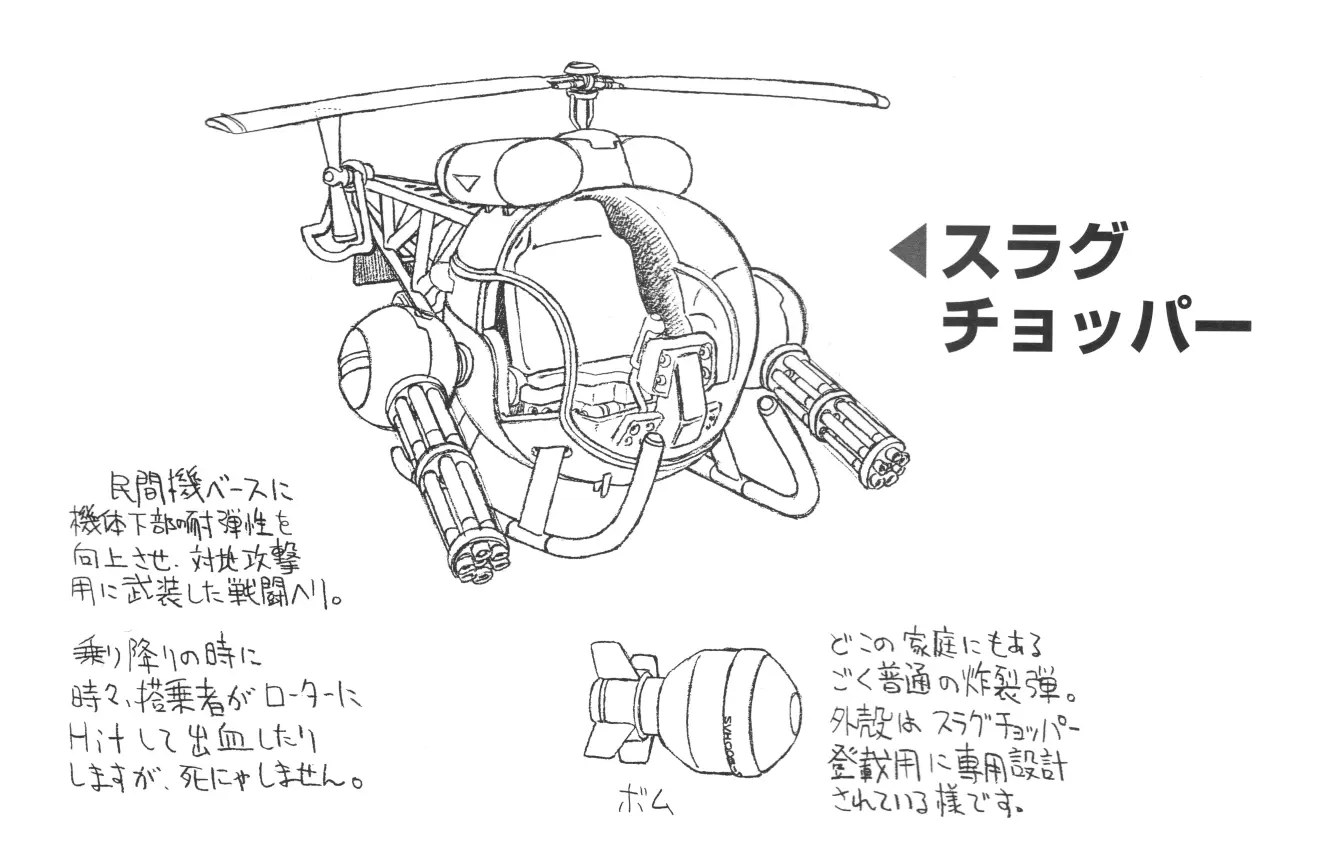 スラグ
チョッパー
民間機ベースに
機体下部の耐弾性を
向上させ、対地攻撃
用に武装した戦闘ヘリ。
乗り降りの時に
時々、搭乗者がローターに
Hitして出血したり
しますが、死にゃしません。
どこの家庭にもある
ごく普通の炸裂弾。
外殻はスラグチョッパー
登載用に専用設計
されている様です。
ボム